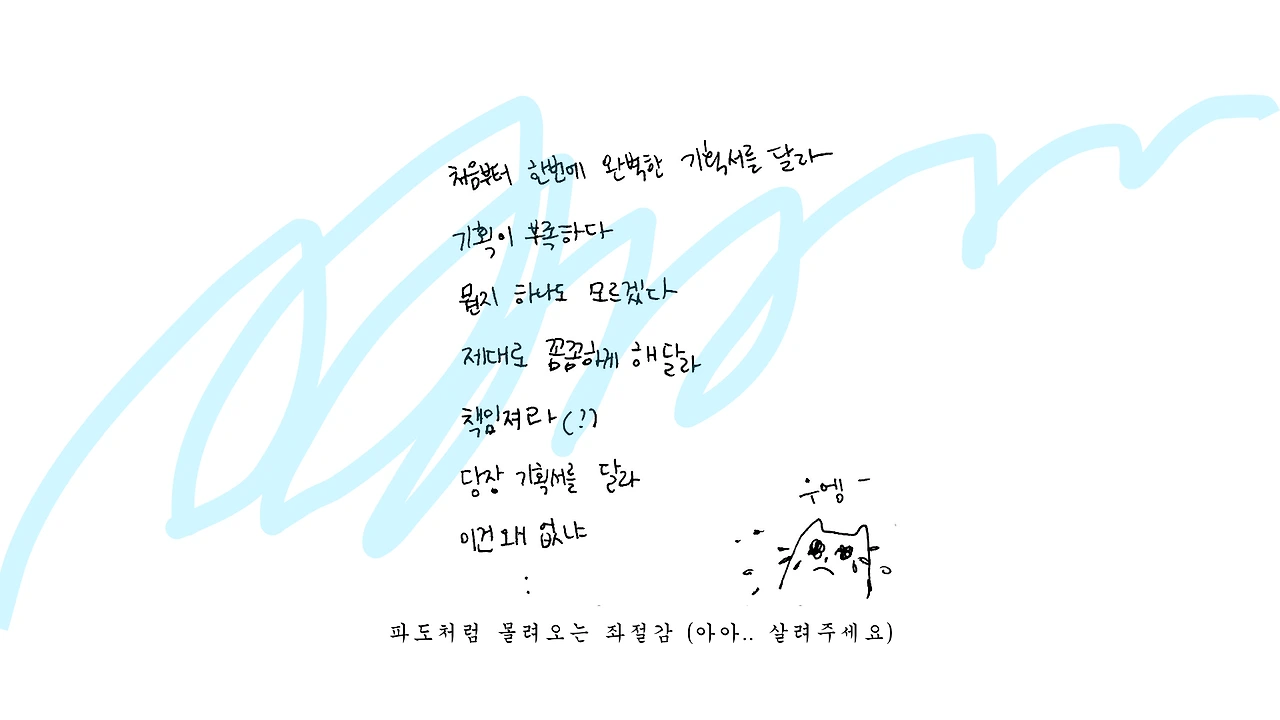 처음부터 한번에 완벽한 기획서를 달라
기획이 부족하다
뭔지 하나도 모르겠다
제대로 꼼꼼하게 해달라
책임져라 (?)
당장 기획서를 달라
이건 왜 없냐
:
우엥 -
파도처럼 몰려오는 좌절감 (아아.. 살려주세요)